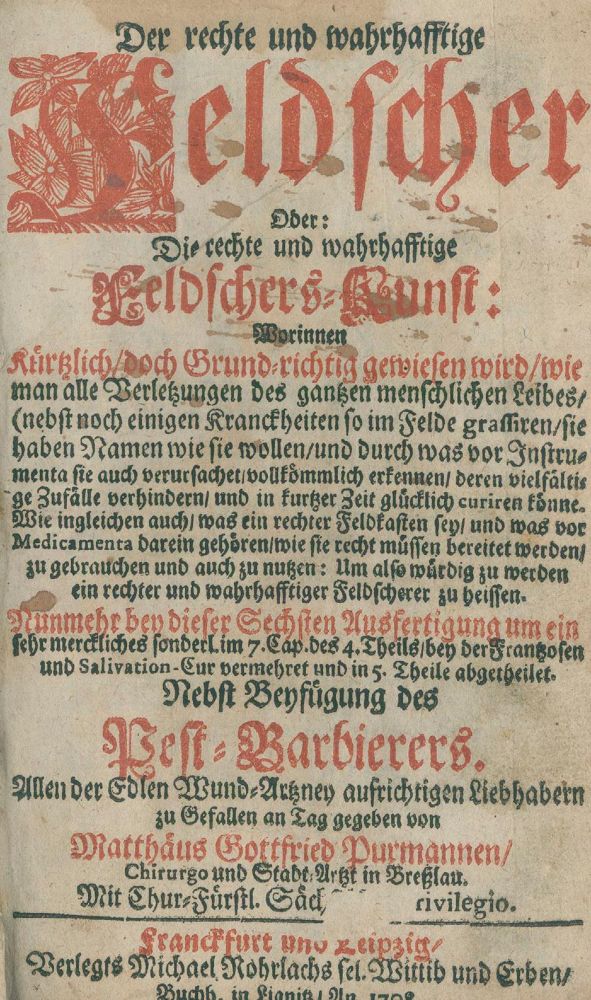 Der rechte und wahrhafftige
Feldscher
Oder:
Die rechte und wahrhafftige
Feldschers-Kunst:
Worinnen
Kürtzlich/doch Grund-richtig gewiesen wird/wie
man alle Verletzungen des gantzen menschlichen Leibes/
(nebst noch einigen Kranckheiten so im Felde grassiren/sie
haben Namen wie sie wollen/und durch was vor Instru-
menta sie auch verursachet/vollkömmlich erkennen/ deren vielfälti-
ge Zufälle verhindern/ und in kurtzer Zeit glücklich curiren könne.
Wie ingleichen auch/ was ein rechter Feldkasten sey/ und was vor
Medicamenta darein gehören/wie sie recht müssen bereitet werden/
zu gebrauchen und auch zu nutzen: Um also würdig zu werden
ein rechter und wahrhafftiger Feldscherer zu heissen.
Nunmehr bey dieser Sechsten Ausfertigung um ein
sehr merckliches sonderl. im 7. Cap. des 4. Theils/ bey der Frantzosen
und Salivation-Cur vermehret und in 5. Theile abgetheilet.
Nebst Beyfügung des
Pest-Barbierers.
Allen der Edlen Wund-Artzney aufrichtigen Liebhabern
zu Gefallen an Tag gegeben von
Matthäus Gottfried Purmannen/
Chirurgo und Stadt-Artzt in Breßlau.
Mit Chur-Fürstl. Säc rivilegio.
Franckfurt und Leipzig/
Verlegts Michael Rohrlachs sel. Wittib und Erben/
Buchh. in Lignitz/ An.